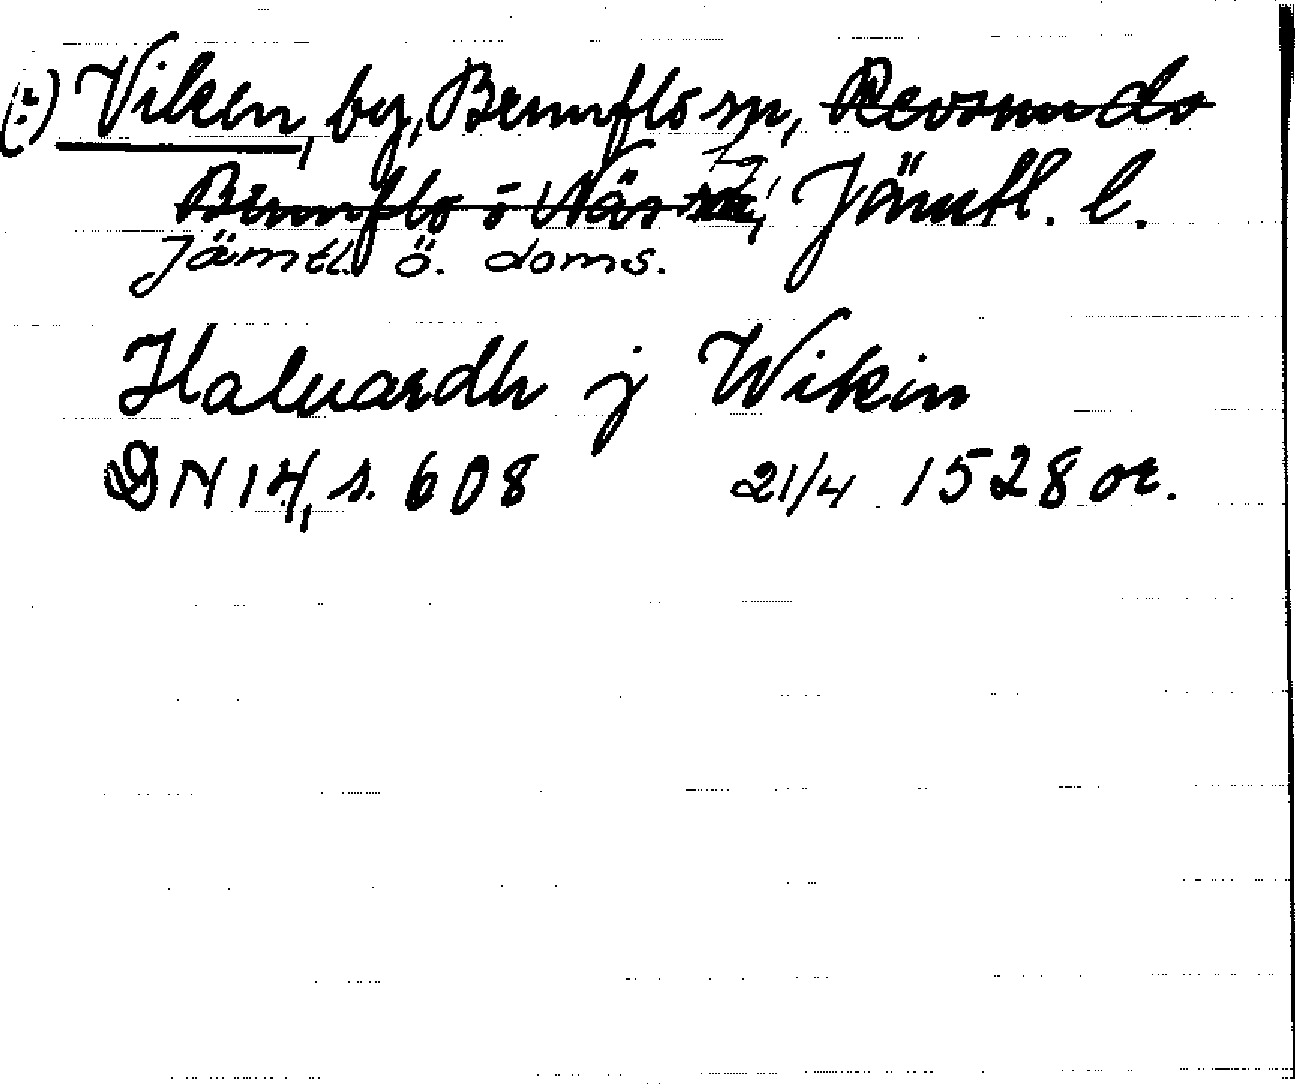 (:) Viken, by, Brunflo sn, Revsunds
Brunflo o Näs Jämtl. l.
Jämtl. ö. doms.
Haluardh j Wikin
DN 14, s. 608 21/4 1528 or.